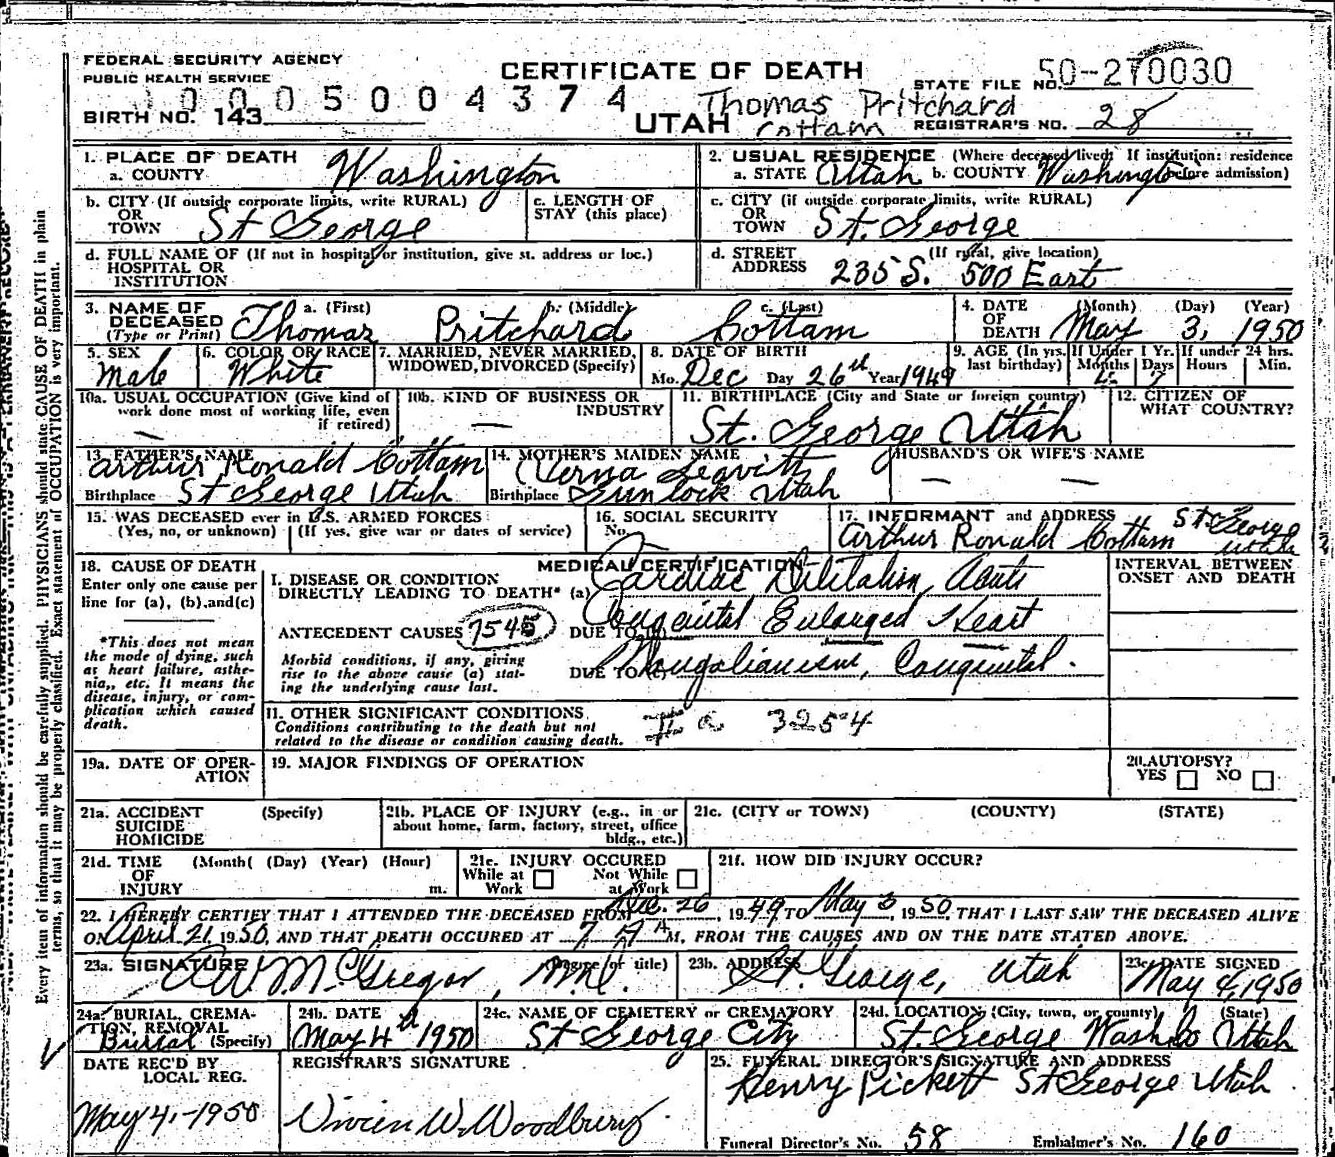 FEDERAL SECURITY AGENCY
PUBLIC HEALTH SERVICE
CERTIFICATE OF DEATH
STATE FILE NO. 50-270030
0005004374
BIRTH NO. 143
Thomas Pritchard
Cottam
UTAH
REGISTRAR'S NO. 28
1. PLACE OF DEATH
a. COUNTY Washington
2. USUAL RESIDENCE (Where deceased lived; If institution: residence before admission)
a. STATE Utah b. COUNTY Washington
b. CITY (If outside corporate limits, write RURAL) OR TOWN St George
c. LENGTH OF STAY (this place)
c. CITY (if outside corporate limits, write RURAL) OR TOWN St. George
d. FULL NAME OF (If not in hospital or institution, give st. address or loc.) HOSPITAL OR INSTITUTION
d. STREET ADDRESS (If rural, give location) 235 S. 500 East
3. NAME OF DECEASED (Type or Print)
a. (First) Thomas
b. (Middle) Pritchard
c. (Last) Cottam
4. DATE OF DEATH (Month) (Day) (Year) May 3, 1950
5. SEX Male
6. COLOR OR RACE White
7. MARRIED, NEVER MARRIED, WIDOWED, DIVORCED (Specify)
8. DATE OF BIRTH
Mo. Dec Day 26th Year 1949
9. AGE (In yrs. last birthday) If Under 1 Yr. Months 4 Days 7 If under 24 hrs. Hours Min.
10a. USUAL OCCUPATION (Give kind of work done most of working life, even if retired) —
10b. KIND OF BUSINESS OR INDUSTRY —
11. BIRTHPLACE (City and State or foreign country) St. George Utah
12. CITIZEN OF WHAT COUNTRY?
13. FATHER'S NAME Arthur Ronald Cottam
Birthplace St George Utah
14. MOTHER'S MAIDEN NAME Verna Leavitt
Birthplace Gunlock Utah
HUSBAND'S OR WIFE'S NAME — —
15. WAS DECEASED ever in U.S. ARMED FORCES (Yes, no, or unknown) (If yes, give war or dates of service)
16. SOCIAL SECURITY No.
17. INFORMANT and ADDRESS Arthur Ronald Cottam St. George Utah
18. CAUSE OF DEATH
Enter only one cause per line for (a), (b), and (c)
*This does not mean the mode of dying, such as heart failure, asthenia, etc. It means the disease, injury, or complication which caused death.
MEDICAL CERTIFICATION
INTERVAL BETWEEN ONSET AND DEATH
I. DISEASE OR CONDITION DIRECTLY LEADING TO DEATH* (a) Cardiac Dilitation, Acute
ANTECEDENT CAUSES 7545 DUE TO (b) Congenital Enlarged Heart
Morbid conditions, if any, giving rise to the above cause (a) stating the underlying cause last.
DUE TO (c) Mongolianism, Congenital.
11. OTHER SIGNIFICANT CONDITIONS
Conditions contributing to the death but not related to the disease or condition causing death.
3254
19a. DATE OF OPERATION
19. MAJOR FINDINGS OF OPERATION
20. AUTOPSY? YES NO
21a. ACCIDENT SUICIDE HOMICIDE (Specify)
21b. PLACE OF INJURY (e.g., in or about home, farm, factory, street, office bldg., etc.)
21c. (CITY or TOWN) (COUNTY) (STATE)
21d. TIME OF INJURY (Month( (Day) (Year) (Hour) m.
21e. INJURY OCCURED While at Work Not While at Work
21f. HOW DID INJURY OCCUR?
22. I HEREBY CERTIFY THAT I ATTENDED THE DECEASED FROM Dec. 26, 1949 TO May 3, 1950, THAT I LAST SAW THE DECEASED ALIVE
ON April 21, 1950, AND THAT DEATH OCCURED AT 7 A M, FROM THE CAUSES AND ON THE DATE STATED ABOVE.
23a. SIGNATURE (Degree or title) McGregor, M.D.
23b. ADDRESS St. George, Utah
23c. DATE SIGNED May 4, 1950
24a. BURIAL, CREMATION, REMOVAL (Specify) Burial
24b. DATE May 4th 1950
24c. NAME OF CEMETERY or CREMATORY St George City
24d. LOCATION (City, town, or county) (State) St. George Wash Co Utah
DATE REC'D BY LOCAL REG. May 4, - 1950
REGISTRAR'S SIGNATURE Vivien W. Woodbury
25. FUNERAL DIRECTOR'S SIGNATURE AND ADDRESS Henry Pickett St George Utah
Funeral Director's No. 58 Embalmer's No. 160
Every item of information should be carefully supplied. PHYSICIANS should state CAUSE OF DEATH in plain
terms, so that it may be properly classified. Exact statement of OCCUPATION is very important.